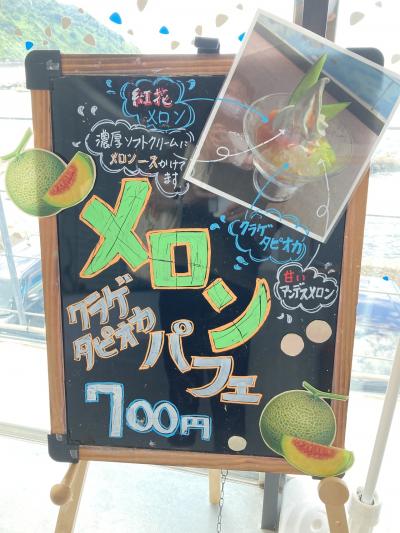 紅花
メロン
濃厚ソフトクリームに
メロンソースかけて
ます。
メロン
クラゲ
タピオカ
パフェ
700円
クラゲ
タピオカ
甘い
アンデスメロン